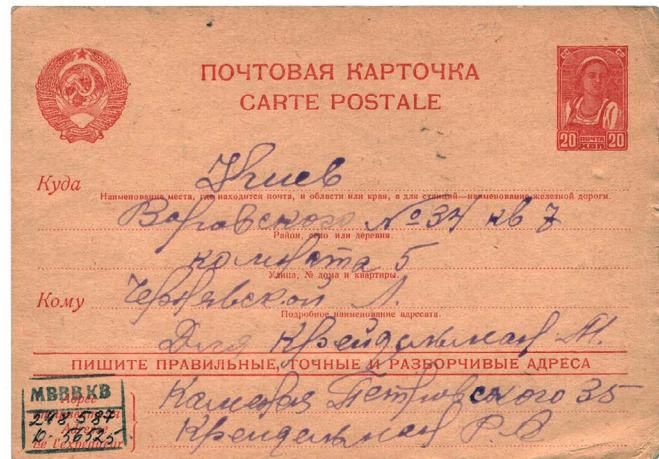 ПОЧТОВАЯ КАРТОЧКА
CARTE POSTALE
20 ПОЧТА 20
КОП
Куда
Киев
Наименование места, где находится почта, и области или края, а для станций—наименование железной дороги.
Воровского №37 кв 7
Район, село или деревня.
комната 5
Улица, № дома и квартиры.
Кому
Чернявской Л.
Подробное наименование адресата.
Для Крейдельман М.
ПИШИТЕ ПРАВИЛЬНЫЕ, ТОЧНЫЕ И РАЗБОРЧИВЫЕ АДРЕСА
МВВВКВ
Адрес
248587
de l'expéditeur
Петровского 35
Крейдельман